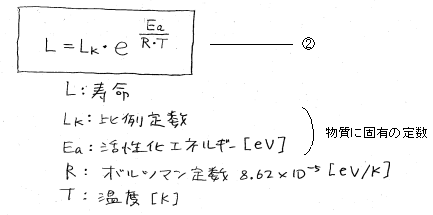 L = Lk・e^(Ea/R・T) ②
L: 寿命
Lk: 比例定数
Ea: 活性化エネルギー [eV]
物質に固有の定数
R: ボルツマン定数 8.62×10⁻⁵ [eV/K]
T: 温度 [K]